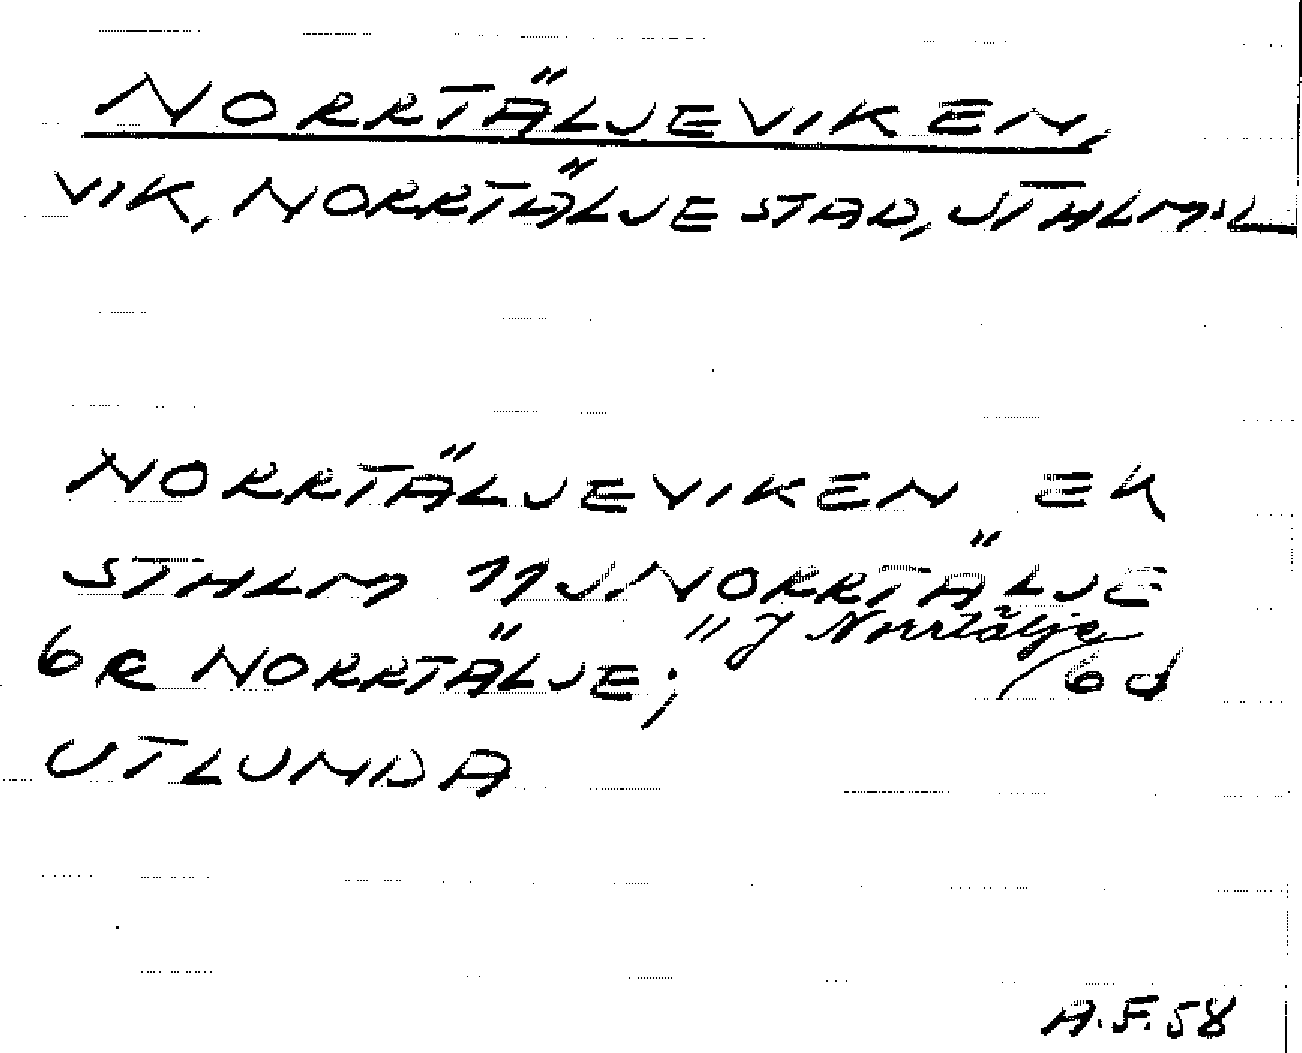 NORRTÄLJEVIKEN,
VIK, NORRTÄLJE STAD, STHLMS L
NORRTÄLJEVIKEN EK
STHLM 11J NORRTÄLJE
6c NORRTÄLJE; " J Norrtälje 6d
UTLUNDA
A.F. 58